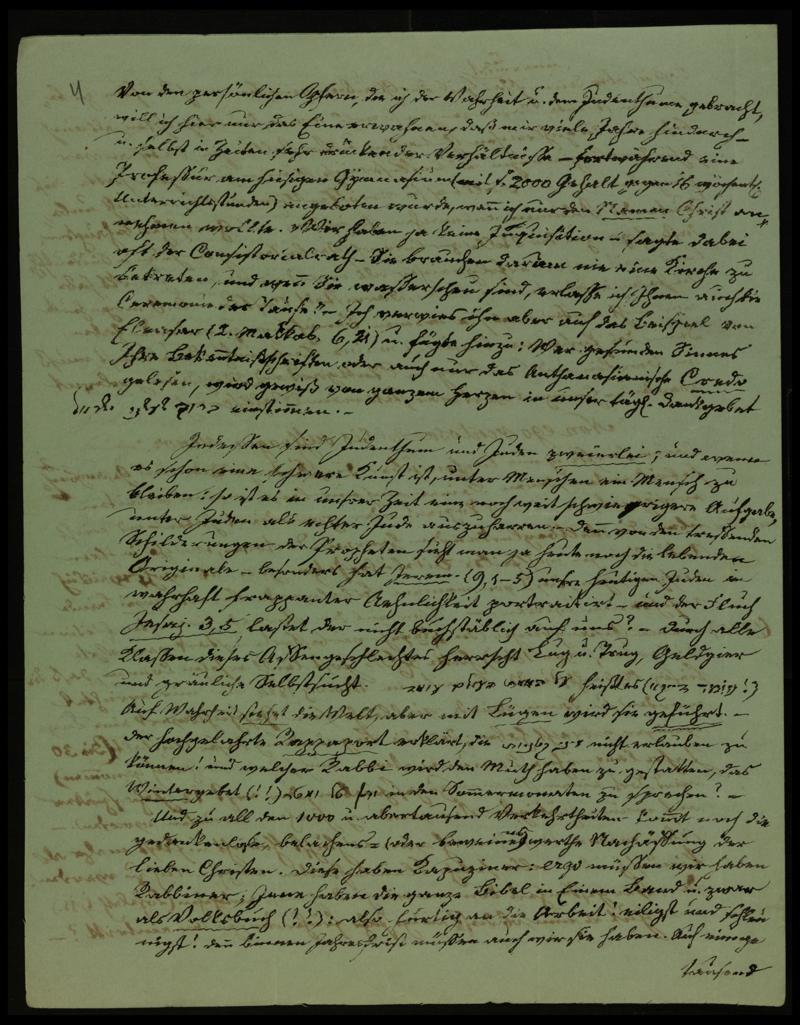 4
Von den persönlichen Opfern, die ich der Wahrheit u. dem Judenthume gebracht,
will ich hier nur das Eine erwähnen, daß mir viele Jahre hindurch –
u. selbst in Zeiten sehr drückender Verhältnisse – fortwährend eine
Professur am hiesigen Gymnasium (mit f. 2000 Gehalt gegen 16 wöchentl.
Unterrichtsstunden) angeboten wurde, wenn ich nur den Namen Christ an-
nehmen wollte. Wir haben ja keine Inquisition – sagte dabei
oft der Consistorialrath – Sie brauchen darum nie eine Kirche zu
betreten, und wenn Sie wasserscheu sind, erlasse ich Ihnen auch die
Ceremonie der Taufe. – Ich verwies ihn aber auf das Beispiel von
Eleasar (2. Makkab. 6, 21) u. fügte hinzu: Wer gesunden Sinnes
Ihre Bekenntnißschriften oder auch nur das Anthanasianische Credo
gelesen, wird gewiß von ganzem Herzen in unser tägl. Dankgebet
einstimmen. –
Indessen sind Judenthum und Juden zweierlei; und wenn
es schon eine schwere Kunst ist, unter Menschen ein Mensch zu
bleiben: so ist es in unsrer Zeit eine noch weit schwierigere Aufgabe,
unter Juden als echter Jude auszuharren. Denn von den treffenden
Schilderungen der Propheten sieht man ja heute noch die lebenden
Originale – besonders hat Jerem. (9, 1–5) unsre heutigen Juden in
wahrhaft frappanter Aehnlichkeit portraitirt – und der Fluch
Jesaj. 3, 5 lastet der nicht buchstäblich auf uns? – Durch alle
Klassen dieses Affengeschlechtes herrscht Lug u. Trug, Geldgier
und gräuliche Selbstsucht. heißt es
Auf Wahrheit stehet die Welt, aber mit Lügen wird sie geführt. –
der hochgelahrte Rappaport erklärt, die nicht erlauben zu
können! und welcher Rabbi wird den Muth haben zu gestatten, das
Wintergebet (!!) in den Sommermonaten zu sprechen? –
Und zu all den 1000 u. abertausend Verkehrtheiten kommt noch die
gedankenlose, belachens- (oder beweinens)werthe Nachäffung der
lieben Christen. Diese haben Kapuziner: ergo müssen wir haben
Rabbiner; Jene haben die ganze Bibel in Einem Band u. zwar
als Volksbuch (!!): also hurtig an die Arbeit! eiligst und schleu-
nigst! denn binnen Jahresfrist müssen auch wir sie haben. Auf einige
tausend